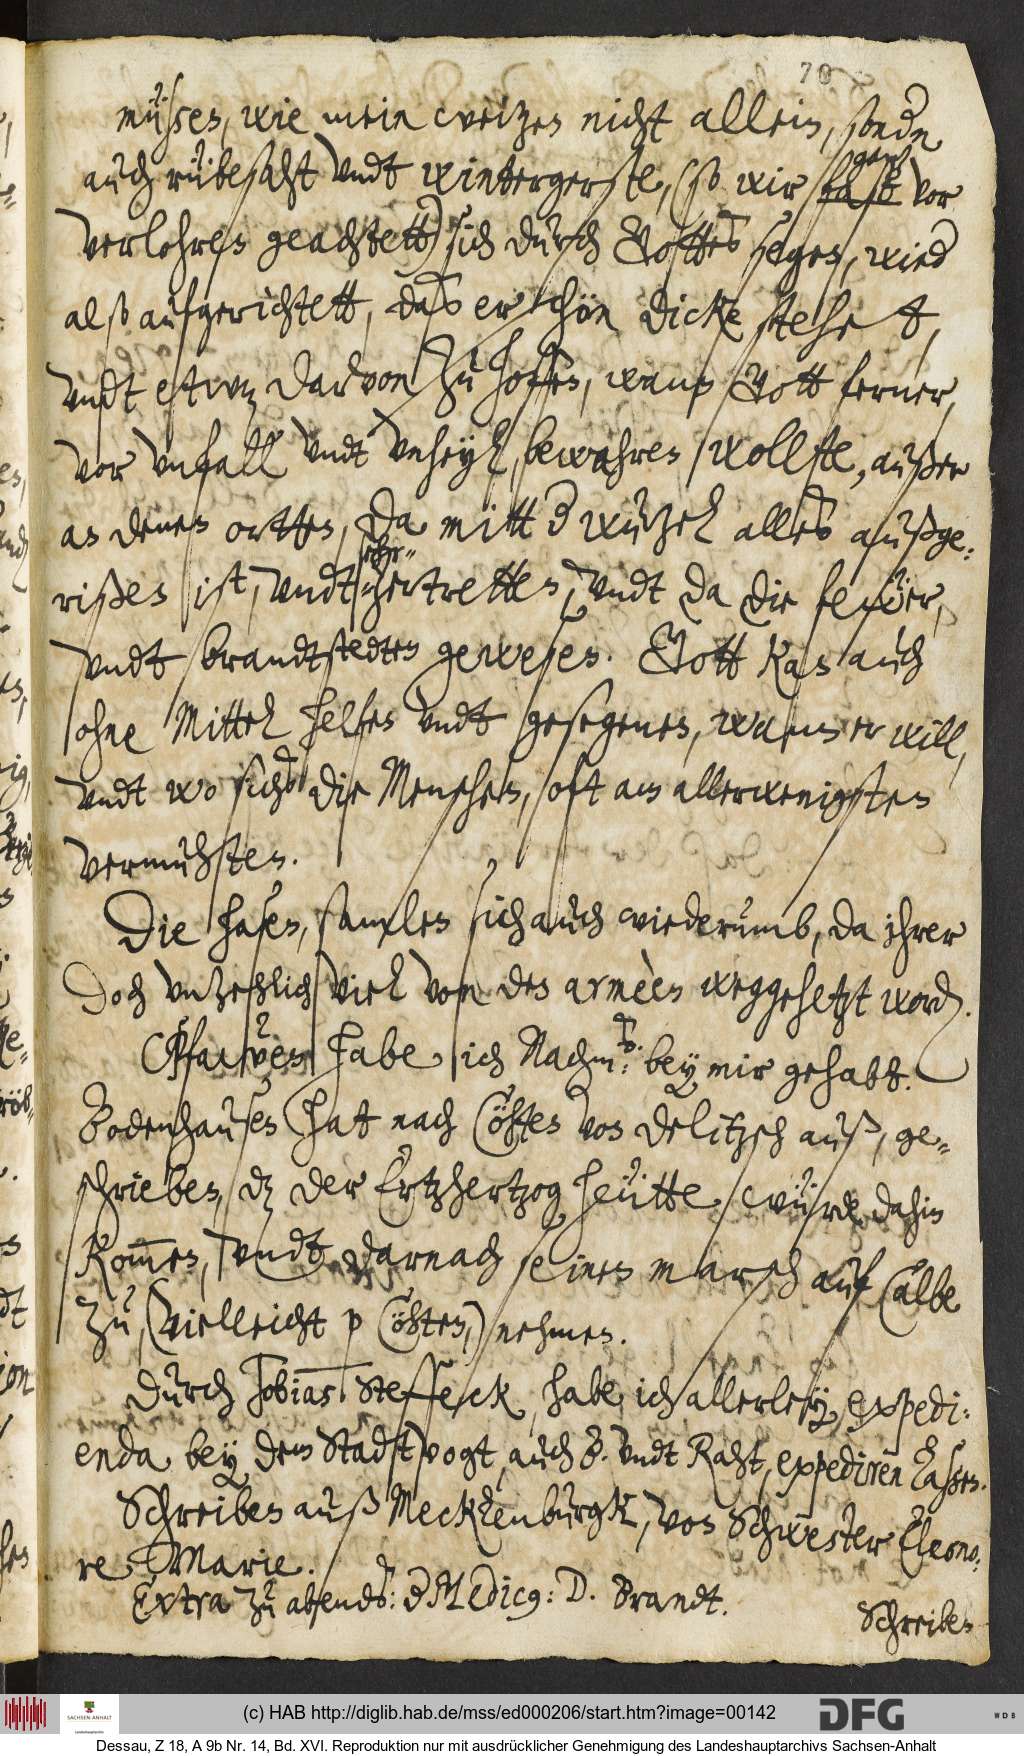 70
müßen, wie mein weitzen nicht allein, sondern
auch rübesaht vndt wintergerste, (so wir fast gantz vor
verlohren geachtett) sich durch Gottes segen, wieder
also aufgerichtett, daß er schön dicke stehet,
vndt etwaß darvon zu hoffen, wann Gott ferner,
vor vnfall vndt vnheyl, bewahren wollte, außer
an denen ortten, da mitt der wurtzel alles außge-
rißen ist, vndt sehr zertretten, vndt da die fewer,
vndt brandtstedten gewesen. Gott kan auch
ohne Mittel helfen vndt gesegenen, wann er will,
vndt wo sichs die Menschen, oft am allerwenigsten
vermuhten.
Die hasen, samlen sich auch wiederumb, da ihrer
doch vnzehlich viel von den armèen weggehetzt worden.
Pfaw bey habe ich Nachmittags: bey mir gehabt.
Bodenhausen hat nach Cöthen von Delitzsch auß, ge-
schrieben, daß der Ertzhertzog heütte, würde dahin
kommen, vndt darnach seinen marsch auf Calbe
zu, (vielleicht per Cöthen,) nehmen.
Durch Tobias Steffeck habe ich allerley, expedi-
enda bey dem Stadtvogt, auch B. vndt Raht, expediren laßen.
Schreiben auß Mecklenburgk, von Schwester Eleono-
re Marie.
Extra zu abends: der Medicus: D. Brandt.
Schreiben
(c) HAB http://diglib.hab.de/mss/ed000206/start.htm?image=00142
SACHSEN-ANHALT
Landeshauptarchiv
DFG
WDB
Dessau, Z 18, A 9b Nr. 14, Bd. XVI. Reproduktion nur mit ausdrücklicher Genehmigung des Landeshauptarchivs Sachsen-Anhalt